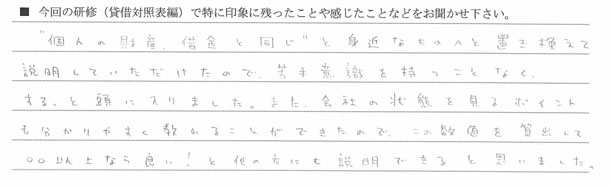 ■ 今回の研修（貸借対照表編）で特に印象に残ったことや感じたことなどをお聞かせ下さい。
"個人の財産、借金と同じ"と身近なものへと置き換えて
説明していただけたので、苦手意識を持つことなく、
すると頭に入りました。また、会社の状態を見るポイント
も分かりやすく教わることができたので、この数値を算出して
○○以上なら良い！と他の方にも説明できると思いました。